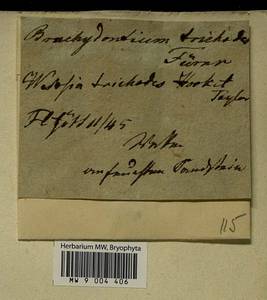 Brachydontium trichodes
Fürnr
Weissia trichodes Hook et
Taylor
11/45
auf feuchtem Sandstein
115
Herbarium MW, Bryophyta
MW 9 004 406